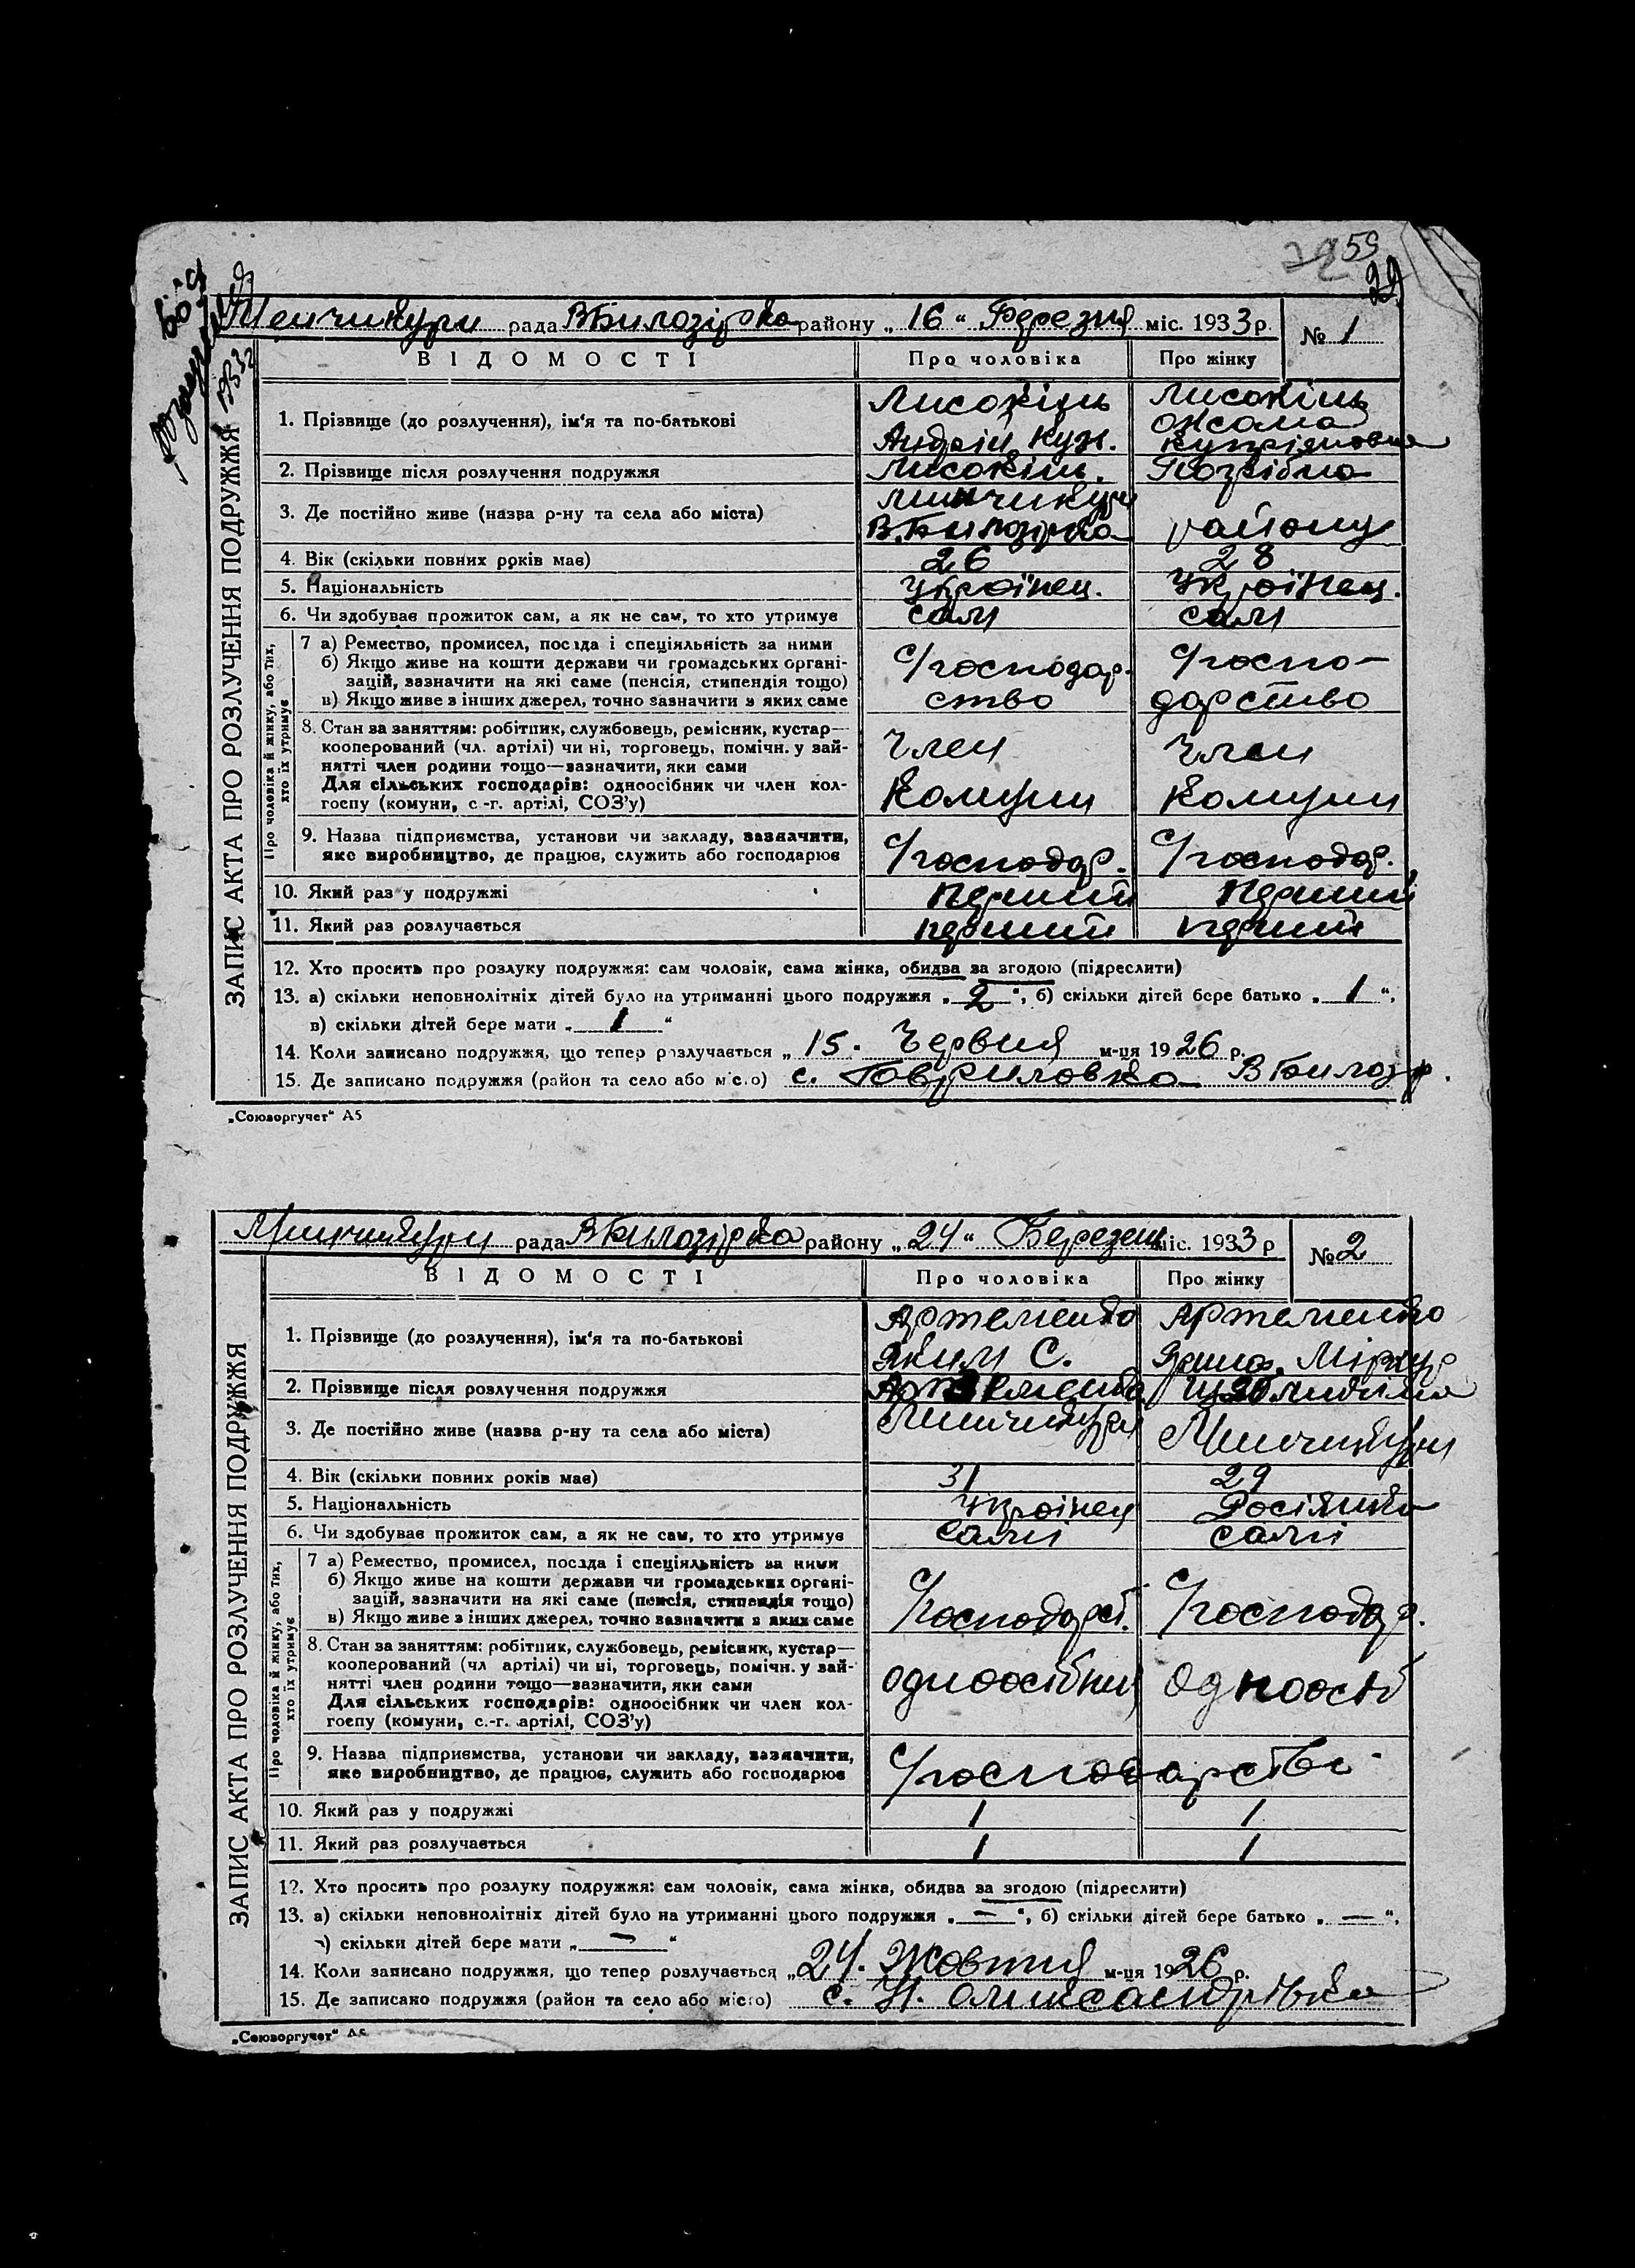 59
29
Менчикури рада ВБилозірка району „16“ Березня міс. 1933 р. № 1
ЗАПИС АКТА ПРО РОЗЛУЧЕННЯ ПОДРУЖЖЯ
ВІДОМОСТІ Про чоловіка Про жінку
1. Прізвище (до розлучення), ім'я та по-батькові
Лисокінь Лисокінь
Андрій Куз. Купріяновна
2. Прізвище після розлучення подружжя Лисокінь.
3. Де постійно живе (назва р-ну та села або міста) Минчикури
В.Билозірка району
4. Вік (скільки повних років має) 26 28
5. Національність Українец. Українец.
6. Чи здобуває прожиток сам, а як не сам, то хто утримує сам сам
Про чоловіка й жінку, або тих, хто їх утримує
7 а) Ремество, промисел, посада і спеціяльність за ними
б) Якщо живе на кошти держави чи громадських органі-
зацій, зазначити на які саме (пенсія, стипендія тощо)
в) Якщо живе з інших джерел, точно зазначити з яких саме
с/господар- с/госпо-
ство дарство
8. Стан за заняттям: робітник, службовець, ремісник, кустар—
кооперований (чл. артілі) чи ні, торговець, помічн. у зай-
нятті член родини тощо—зазначити, яки сами
Для сільських господарів: одноосібник чи член кол-
госпу (комуни, с.-г. артілі, СОЗ'у)
Член Член
Комуни Комуни
9. Назва підприємства, установи чи закладу, зазначити,
яке виробництво, де працює, служить або господарює
с/господар. с/господар.
10. Який раз у подружжі перший перший
11. Який раз розлучається перший перший
12. Хто просить про розлуку подружжя: сам чоловік, сама жінка, обидва за згодою (підреслити)
13. а) скільки неповнолітніх дітей було на утриманні цього подружжя „ 2 “, б) скільки дітей бере батько „ 1 “,
в) скільки дітей бере мати „ 1 “
14. Коли записано подружжя, що тепер розлучається „ 15. Червня м-ця 1926 р.
15. Де записано подружжя (район та село або місто) с. Гавриловка ВБилозір.
„Союзоргучет“ А5
Минчикури рада ВБилозірка району „24“ Березень міс. 1933 р № 2
ЗАПИС АКТА ПРО РОЗЛУЧЕННЯ ПОДРУЖЖЯ
ВІДОМОСТІ Про чоловіка Про жінку
1. Прізвище (до розлучення), ім'я та по-батькові
Артеменко Артеменко
Яким С.
2. Прізвище після розлучення подружжя
3. Де постійно живе (назва р-ну та села або міста) Минчикури Минчикури
4. Вік (скільки повних років має) 31 29
5. Національність Українец Росіянка
6. Чи здобуває прожиток сам, а як не сам, то хто утримує сами самі
Про чоловіка й жінку, або тих, хто їх утримує
7 а) Ремество, промисел, посада і спеціяльність за ними
б) Якщо живе на кошти держави чи громадських органі-
зацій, зазначити на які саме (пенсія, стипендія тощо)
в) Якщо живе з інших джерел, точно зазначити з яких саме
с/господарст. с/господар.
8. Стан за заняттям: робітник, службовець, ремісник, кустар—
кооперований (чл артілі) чи ні, торговець, помічн. у зай-
нятті член родини тощо—зазначити, яки сами
Для сільських господарів: одноосібник чи член кол-
госпу (комуни, с.-г. артілі, СОЗ'у)
одноосібник одноосіб
9. Назва підприємства, установи чи закладу, зазначити,
яке виробництво, де працює, служить або господарює
с/господарстві
10. Який раз у подружжі 1 1
11. Який раз розлучається 1 1
12. Хто просить про розлуку подружжя: сам чоловік, сама жінка, обидва за згодою (підреслити)
13. а) скільки неповнолітніх дітей було на утриманні цього подружжя „ — “, б) скільки дітей бере батько „ — “,
в) скільки дітей бере мати „ — “
14. Коли записано подружжя, що тепер розлучається „ 24. Жовтня м-ця 1926 р.
15. Де записано подружжя (район та село або місто) с. Н. Оликсандрівка
„Союзоргучет“ А5